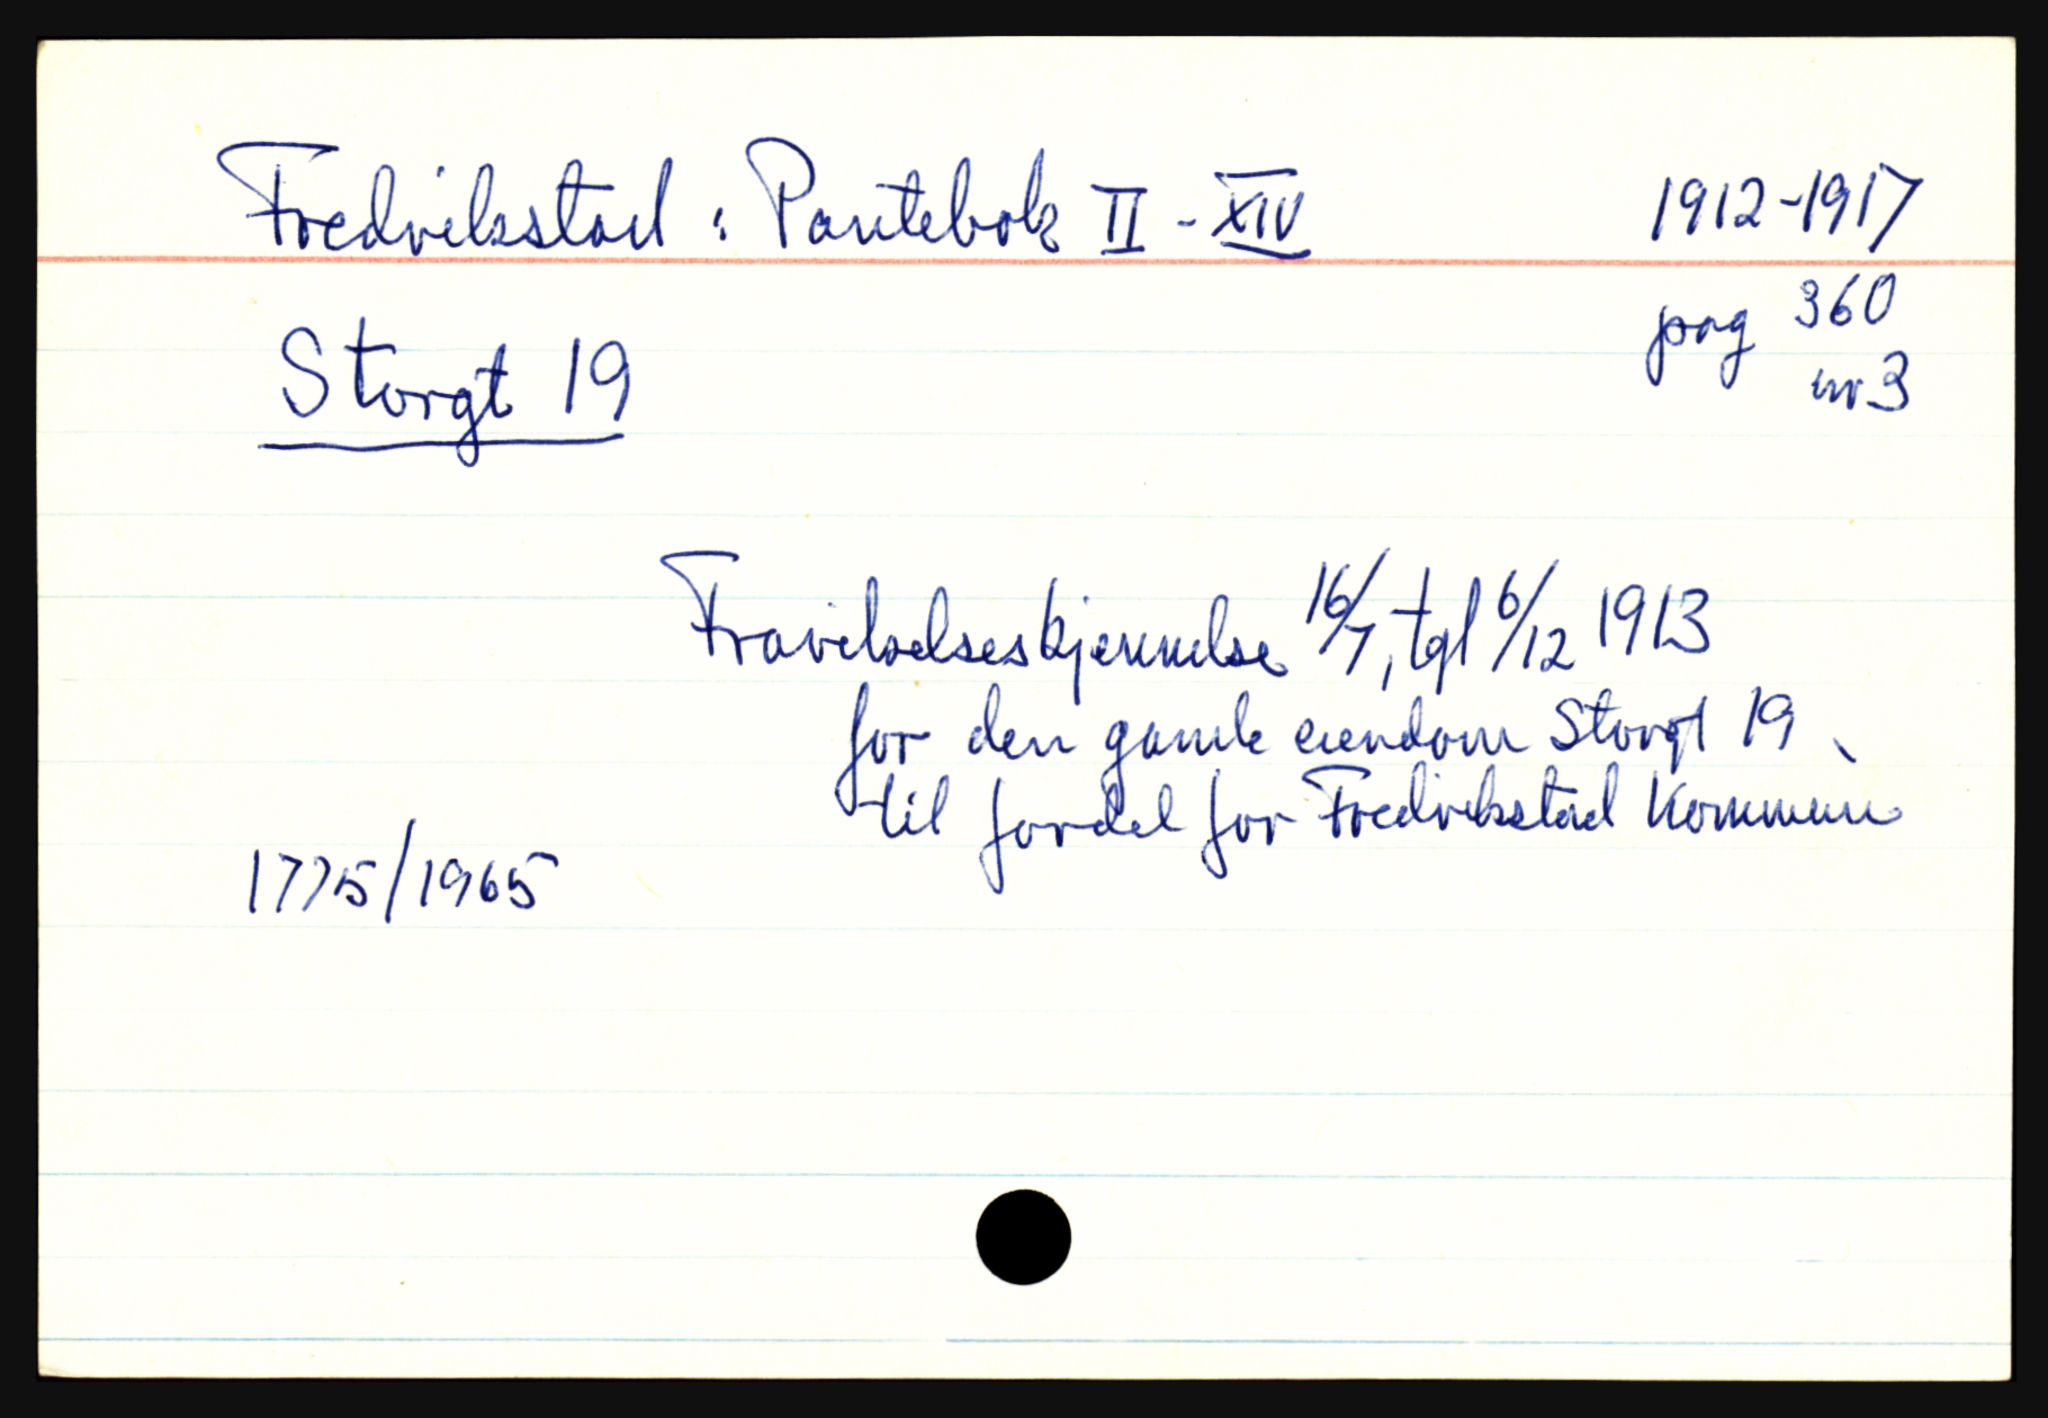 Fredrikstad : Pantebok II - XIV 1912-1917
pag 360
nr 3
Storgt 19
Fravikelseskjennelse 16/7, tgl 6/12 1913
for den gamle eiendom Storgt 19
til fordel for Fredrikstad Kommune
1775/1965